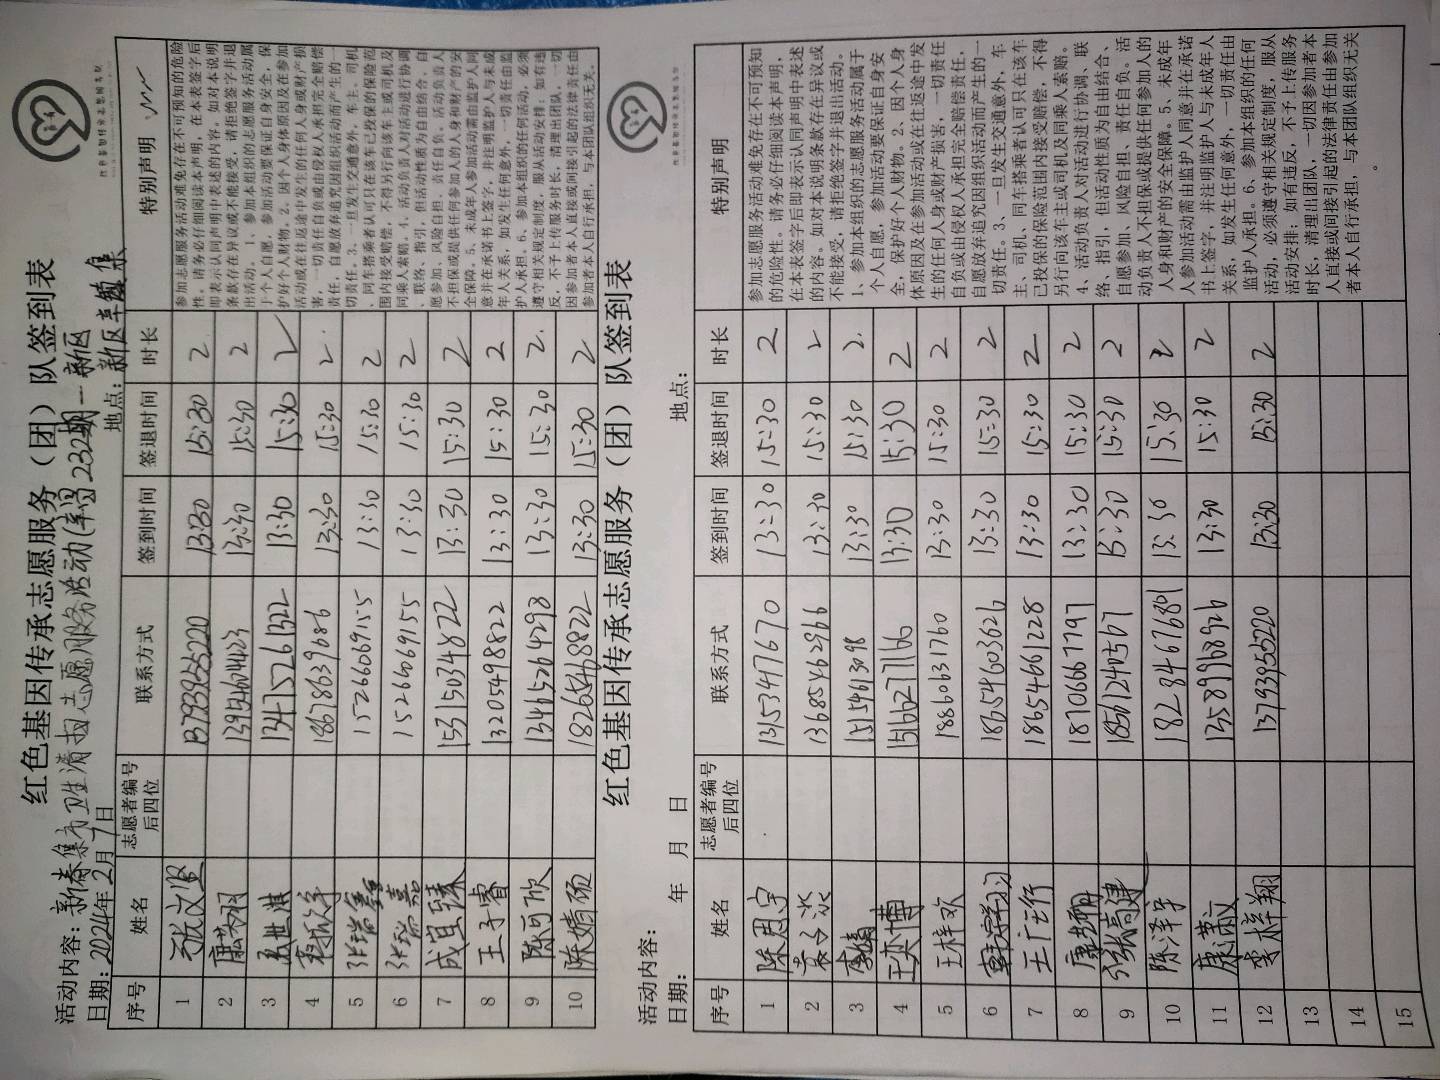 红色基因传承志愿服务（团）队签到表
活动内容：新春集市卫生清扫志愿服务活动 232期一新区
日期：2024年2月7日 地点：新区 集
序号 姓名 志愿者编号后四位 联系方式 签到时间 签退时间 时长 特别声明
1 13793955220 13:30 15:30 2
2 13:30 15:30 2
3 13475261322 13:30 15:30 2
4 18678639686 13:30 15:30 2
5 15266069155 13:30 15:30 2
6 15266069155 13:30 15:30 2
7 成宜臻 15315034822 13:30 15:30 2
8 王子睿 13205498822 13:30 15:30 2
9 陈可欣 13465264298 13:30 15:30 2
10 陈婧硕 18265468822 13:30 15:30 2
参加志愿服务活动难免存在不可预知的危险性。请务必仔细阅读本声明，在本表签字后即表示认同声明中表述的内容。如对本说明条款存在异议或不能接受，请拒绝签字并退出活动。1、参加本组织的志愿服务活动属于个人自愿，参加活动要保证自身安全，保护好个人财物。2、因个人身体原因及在参加活动或在往返途中发生的任何人身或财产损害，一切责任自负或由侵权人承担完全赔偿责任，自愿放弃追究因组织活动而产生的一切责任。3、一旦发生交通意外，车主、司机、同车搭乘者认可只在该车已投保的保险范围内接受赔偿、不得另行向该车主或司机及同乘人索赔。4、活动负责人对活动进行协调、联络、指引，但活动性质为自由结合、自愿参加、风险自担、责任自负。活动负责人不担保或提供任何参加人的人身和财产的安全保障。5、未成年人参加活动需由监护人同意并在承诺书上签字，并注明监护人与未成年人关系，如发生任何意外，一切责任由监护人承担。6、参加本组织的任何活动，必须遵守相关规定制度，服从活动安排；如有违反，不予上传服务时长，清理出团队。一切因参加者本人直接或间接引起的法律责任由参加者本人自行承担，与本团队组织无关。
红色基因传承志愿服务（团）队签到表
活动内容：
日期： 年 月 日 地点：
序号 姓名 志愿者编号后四位 联系方式 签到时间 签退时间 时长 特别声明
1 陈思宇 13153477670 13:30 15:30 2
2 13685462966 13:30 15:30 2
3 15154613098 13:30 15:30 2
4 王奕博 15166277166 13:30 15:30 2
5 王梓欢 18860631760 13:30 15:30 2
6 韩学习 18654603626 13:30 15:30 2
7 王广行 18654661228 13:30 15:30 2
8 18706667797 13:30 15:30 2
9 张高建 18561240567 13:30 15:30 2
10 陈泽宇 18284676801 13:30 15:30 2
11 13589968926 13:30 15:30 2
12 李梓翔 13793955220 13:30 15:30 2
13
14
15
参加志愿服务活动难免存在不可预知的危险性。请务必仔细阅读本声明，在本表签字后即表示认同声明中表述的内容。如对本说明条款存在异议或不能接受，请拒绝签字并退出活动。
1、参加本组织的志愿服务活动属于个人自愿，参加活动要保证自身安全，保护好个人财物。2、因个人身体原因及在参加活动或在往返途中发生的任何人身或财产损害，一切责任自负或由侵权人承担完全赔偿责任，自愿放弃追究因组织活动而产生的一切责任。3、一旦发生交通意外，车主、司机、同车搭乘者认可只在该车已投保的保险范围内接受赔偿、不得另行向该车主或司机及同乘人索赔。
4、活动负责人对活动进行协调、联络、指引，但活动性质为自由结合、自愿参加、风险自担、责任自负。活动负责人不担保或提供任何参加人的人身和财产的安全保障。5、未成年人参加活动需由监护人同意并在承诺书上签字，并注明监护人与未成年人关系，如发生任何意外，一切责任由监护人承担。6、参加本组织的任何活动，必须遵守相关规定制度，服从活动安排；如有违反，不予上传服务时长，清理出团队，一切因参加者本人直接或间接引起的法律责任由参加者本人自行承担，与本团队组织无关。